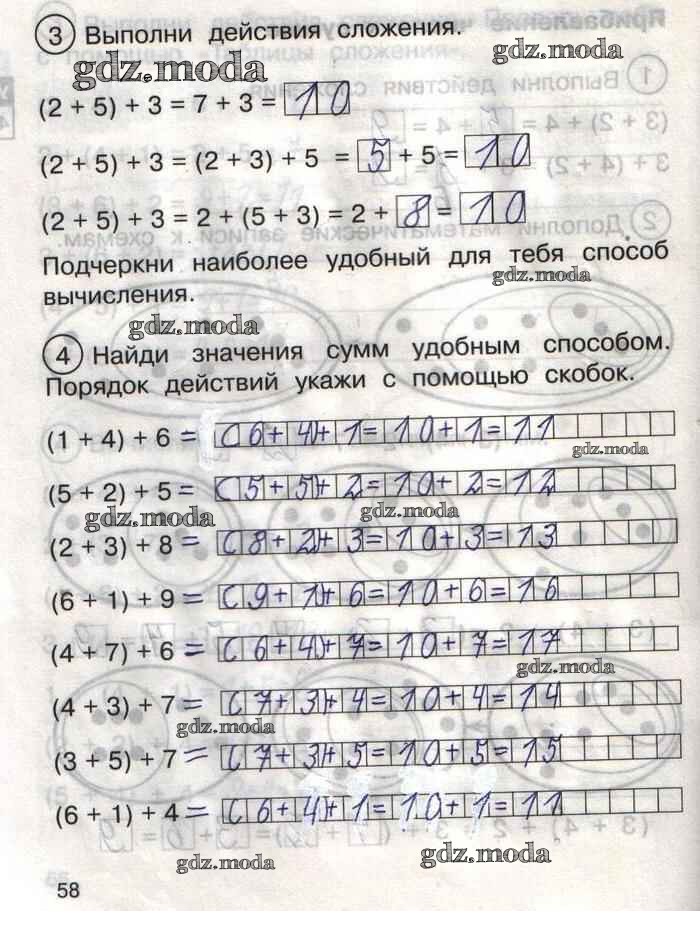 3 Выполни действия сложения.
gdz.moda
(2 + 5) + 3 = 7 + 3 = 10
(2 + 5) + 3 = (2 + 3) + 5 = 5 + 5 = 10
(2 + 5) + 3 = 2 + (5 + 3) = 2 + 8 = 10
Подчеркни наиболее удобный для тебя способ
gdz.moda
вычисления.
gdz.moda
4 Найди значения сумм удобным способом.
Порядок действий укажи с помощью скобок.
(1 + 4) + 6 = (6+4)+1=10+1=11
gdz.moda
(5 + 2) + 5 = (5+5)+2=10+2=12
gdz.moda
gdz.moda
(2 + 3) + 8 = (8+2)+3=10+3=13
(6 + 1) + 9 = (9+1)+6=10+6=16
(4 + 7) + 6 = (6+4)+7=10+7=17
gdz.moda
(4 + 3) + 7 = (7+3)+4=10+4=14
gdz.moda
(3 + 5) + 7 = (7+3)+5=10+5=15
(6 + 1) + 4 = (6+4)+1=10+1=11
gdz.moda
gdz.moda
58